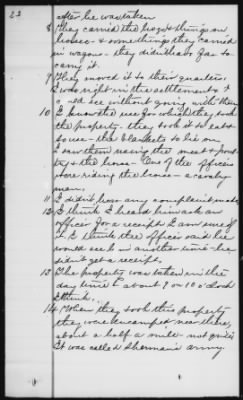 23
after he was taken
8 They carried the hogs & things on
horses & some things they carried
in wagons - they didn't have far to
carry it.
9 They moved it to their quarters.
I was right in the settlement &
could see without going with them
10 I know the use for which they took
the property - they took it to eat &
to use - the blankets to lie on.
I saw them using the meat & poultry
& the horse - One of the officers
were riding the horse - a cavalry
man.
11 I didn't hear any complaint made
12 I think I heard him ask an
officer for a receipt I am sure of
it & I think the officer said he
would see him another time - he
didn't get a receipt.
13 The property was taken in the
day time & about 9 or 10 o'clock
I think.
14 When they took this property
they were encamped near there,
about a half a mile - not quite
It was called Sherman's army